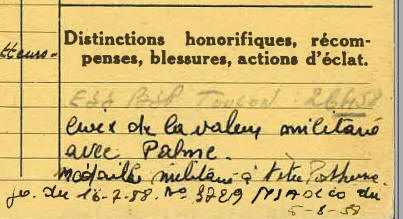 Distinctions honorifiques, récom-
penses, blessures, actions d'éclat.
Toulon
Croix de la valeur militaire
avec Palme.
Médaille militaire à titre Posthume
jo. du 16-7-58. No 3729 du
5-8-58